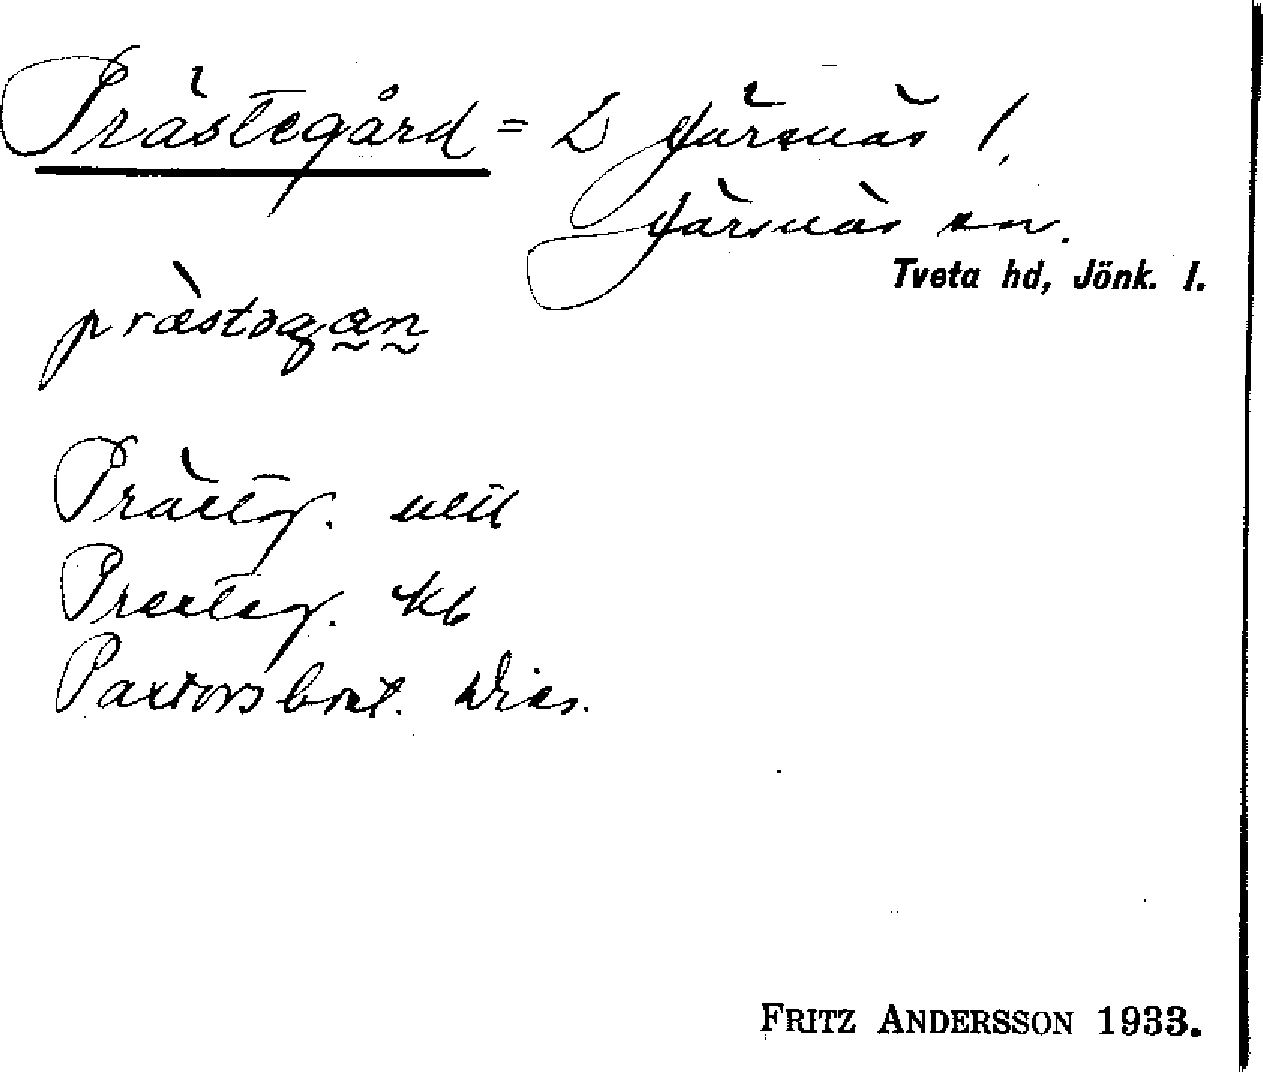 Prästegård = L Järsnäs 1.
Järsnäs sn.
Tveta hd, Jönk. l.
pràstəgan
Prästg.
Prestg. kb
Pastorsbost.
FRITZ ANDERSSON 1933.